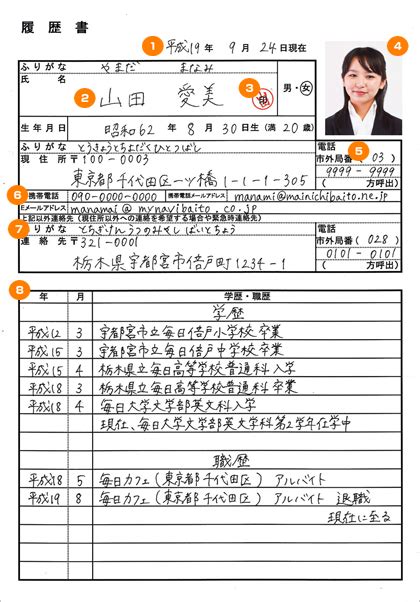 履歴書
1 平成19年 9月 24日現在
4
ふりがな やまだ まなみ
氏名
2 山田 愛美 3 印
男・女
生年月日 昭和62年 8月 30日生(満20歳)
ふりがな とうきょうとちよだくひとつばし
電話 5
現住所 〒100-0003
市外局番(03)
東京都千代田区一ツ橋1-1-1-305
9999-9999
(方呼出)
6 携帯電話 090-0000-0000 携帯電話メールアドレス manami@mainichibaito.ne.jp
Eメールアドレス manamai@mynavibaito.co.jp
上記以外連絡先(現住所以外への連絡を希望する場合や緊急時連絡先)
7 ふりがな とちぎけんうつのみやし ばいとちょう
電話
連絡先 〒321-0001
市外局番(028)
栃木県宇都宮市倍戸町1234-1
0101-0101
(方呼出)
8 年 月 学歴・職歴
学歴
平成12 3 宇都宮市立毎日倍戸小学校 卒業
平成15 3 宇都宮市立毎日倍戸中学校 卒業
平成15 4 栃木県立毎日高等学校普通科 入学
平成18 3 栃木県立毎日高等学校普通科 卒業
平成18 4 毎日大学文学部英文科入学
現在、毎日大学文学部英文学科第2学年在学中
職歴
平成18 5 毎日カフェ(東京都千代田区) アルバイト
平成19 8 毎日カフェ(東京都千代田区) アルバイト 退職
現在に至る